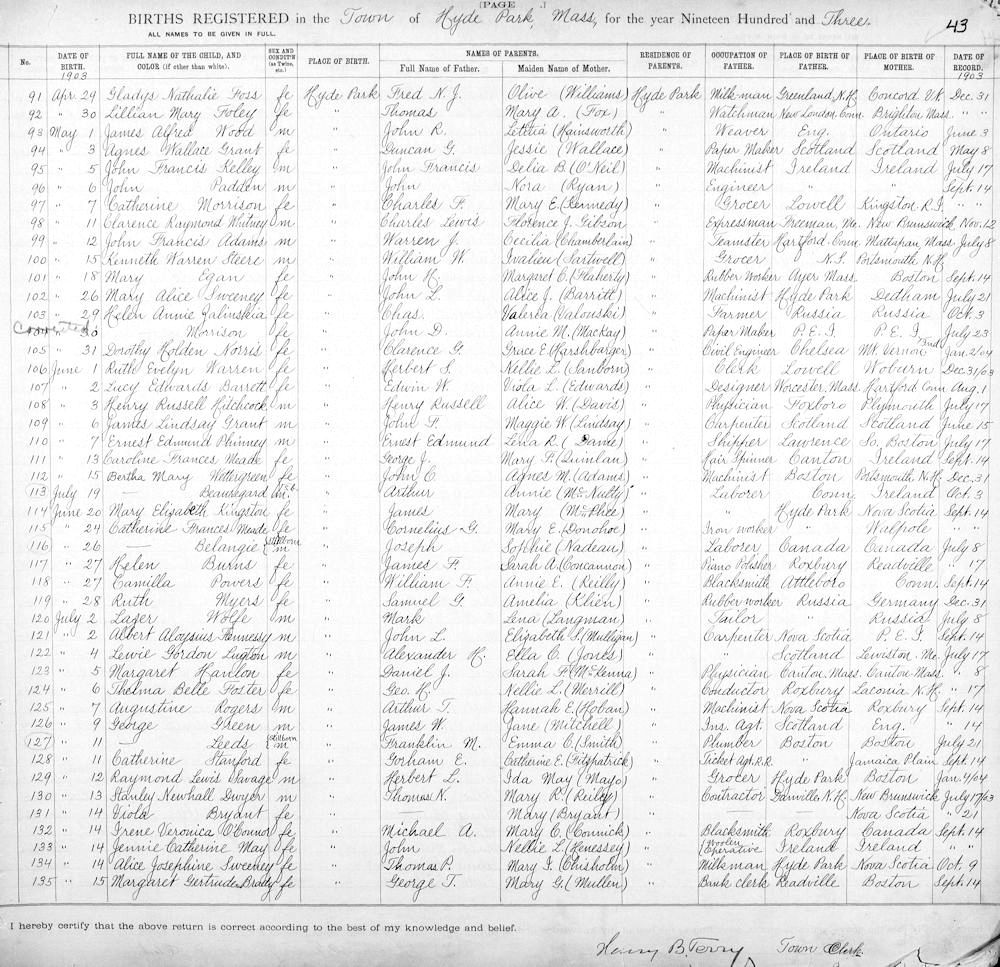 [PAGE .]
BIRTHS REGISTERED in the Town of Hyde Park, Mass, for the year Nineteen Hundred and Three.
43
ALL NAMES TO BE GIVEN IN FULL.
No. DATE OF BIRTH. 1903 FULL NAME OF THE CHILD, AND COLOR (if other than white). SEX AND CONDIT'N (as Twins, etc.) PLACE OF BIRTH. NAMES OF PARENTS. Full Name of Father. Maiden Name of Mother. RESIDENCE OF PARENTS. OCCUPATION OF FATHER. PLACE OF BIRTH OF FATHER. PLACE OF BIRTH OF MOTHER. DATE OF RECORD. 1903
91 Apr. 24 Gladys Nathalie Foss fe Hyde Park Fred N. J. Olive (Williams) Hyde Park Milkman Greenland, N.H. Concord Vt. Dec. 31
92 " 30 Lillian Mary Foley fe " Thomas Mary A. (Fox) " Watchman New London, Conn. Brighton Mass. " "
93 May 1 James Alfred Wood m " John R. Letitia (Hainsworth) " Weaver Eng. Ontario June 3
94 " 3 Agnes Wallace Grant fe " Duncan G. Jessie (Wallace) " Paper Maker Scotland Scotland May 8
95 " 5 John Francis Kelley m " John Francis Delia B. (O'Neil) " Machinist Ireland Ireland July 17
96 " 6 John Padden m " John Nora (Ryan) " Engineer " " Sept. 14
97 " 7 Catherine Morrison fe " Charles F. Mary E. (Kennedy) " Grocer Lowell Kingston R.I. " "
98 " 11 Clarence Raymond Whitney m " Charles Lewis Florence J. Gibson " Expressman Freeman, Me. New Brunswick Nov. 12
99 " 12 John Francis Adams m " Warren J. Cecilia (Chamberlain) " Teamster Hartford, Conn. Mattapan, Mass July 8
100 " 15 Kenneth Warren Steere m " William W. (Sartwell) " Grocer Portsmouth, N.H. "
101 " 18 Mary Egan fe " John H. Margaret C. (Flaherty) " Rubber Worker Ayer Mass. Boston Sept. 14
102 " 26 Mary Alice Sweeney fe " John L. Alice J. (Barritt) " Machinist Hyde Park Dedham July 21
103 " 29 Helen Annie Zalinskia fe " Chas. Valerea (Valouski) " Farmer Russia Russia Oct. 3
Corrected 30 — Morrison fe " John D. Annie M. (MacKay) " Paper Maker P.E.I. P.E.I. July 23
105 " 31 Dorothy Holden Norris fe " Clarence G. Grace E. (Harshbarger) " Civil Engineer Chelsea Mt. Vernon Ind. Jan. 2/04
106 June 1 Ruth Evelyn Warren fe " Herbert S. Nellie L. (Sanborn) " Clerk Lowell Woburn Dec. 31/03
107 " 2 Lucy Edwards Barrett fe " Edwin W. Viola L. (Edwards) " Designer Worcester, Mass. Hartford Conn Aug. 1
108 " 3 Henry Russell Hitchcock m " Henry Russell Alice W. (Davis) " Physician Foxboro Plymouth July 17
109 " 6 James Lindsay Grant m " John F. Maggie W. (Lindsay) " Carpenter Scotland Scotland June 15
110 " 7 Ernest Edmund Phinney m " Ernest Edmund Lena R. (Dame) " Shipper Lawrence So. Boston July 17
111 " 13 Caroline Frances Meade fe " George J. Mary F. (Quinlan) " Hair Spinner Canton Ireland Sept. 14
112 " 15 Bertha Mary Wettergreen fe " John C. Agnes M. (Adams) " Machinist Boston Portsmouth, N.H. Dec. 31
113 July 19 — Beauregard m. " Arthur Annie (McNulty) " Laborer Conn. Ireland Oct. 3
114 June 20 Mary Elizabeth Kingston fe " James Mary (McPhee) " " Hyde Park Nova Scotia Sept. 14
115 " 24 Catherine Frances Meade fe " Cornelius G. Mary E. (Donohoe) " Iron worker " Walpole " "
116 " 26 — Belangie stillborn m " Joseph Sophie (Nadeau) " Laborer Canada Canada July 8
117 " 27 Helen Burns fe " James F. Sarah A. (Concannon) " Piano Polisher Roxbury Readville " 17
118 " 27 Camilla Powers fe " William F. Annie E. (Reilly) " Blacksmith Attleboro Conn. Sept. 14
119 " 28 Ruth Myers fe " Samuel G. Amelia (Klien) " Rubber worker Russia Germany Dec. 31
120 July 2 Lazer Wolfe m " Mark Lena (Langman) " Tailor " Russia July 8
121 " 2 Albert Aloysius Hennessy m " John L. Elizabeth S. (Mulligan) " Carpenter Nova Scotia P.E.I. Sept. 14
122 " 4 Lewie Gordon Lugton m " Alexander H. Ella C. (Jones) " " Scotland Lewiston, Me. July 17
123 " 5 Margaret Hanlon fe " Daniel J. Sarah F. (McKenna) " Physician Canton, Mass. Canton Mass. " 8
124 " 6 Thelma Belle Foster fe " Geo. H. Nellie L. (Merrill) " Conductor Roxbury Laconia N.H. " 17
125 " 7 Augustine Rogers m " Arthur T. Hannah E. (Hoban) " Machinist Nova Scotia Roxbury Sept. 14
126 " 9 George Green m " James W. Jane (Mitchell) " Ins. Agt. Scotland Eng. " 14
127 " 11 — Leeds stillborn m " Franklin M. Emma C. (Smith) " Plumber Boston Boston July 21
128 " 11 Catherine Stanford fe " Gorham E. Catherine E. (Fitzpatrick) " Ticket Agt. R.R. " Jamaica Plain Sept. 14
129 " 12 Raymond Lewis Savage m " Herbert L. Ida May (Mayo) " Grocer Hyde Park Boston Jan. 4/04
130 " 13 Stanley Newhall Dwyer m " Thomas K. Mary R. (Reiley) " Contractor Danville, N.H. New Brunswick July 17/03
131 " 14 Viola Bryant fe " — Mary (Bryant) " — — Nova Scotia " 21
132 " 14 Irene Veronica O'Connor fe " Michael A. Mary C. (Connick) " Blacksmith Roxbury Canada Sept. 14
133 " 14 Jennie Catherine May fe " John Nellie L. (Henessey) " Woolen Operative Ireland Ireland " "
134 " 14 Alice Josephine Sweeney fe " Thomas P. Mary I. (Chisholm) " Milkman Hyde Park Nova Scotia Oct. 9
135 " 15 Margaret Gertrude Brady fe " George T. Mary G. (Mullen) " Bank clerk Readville Boston Sept. 14
I hereby certify that the above return is correct according to the best of my knowledge and belief.
Henry B. Terry Town Clerk.